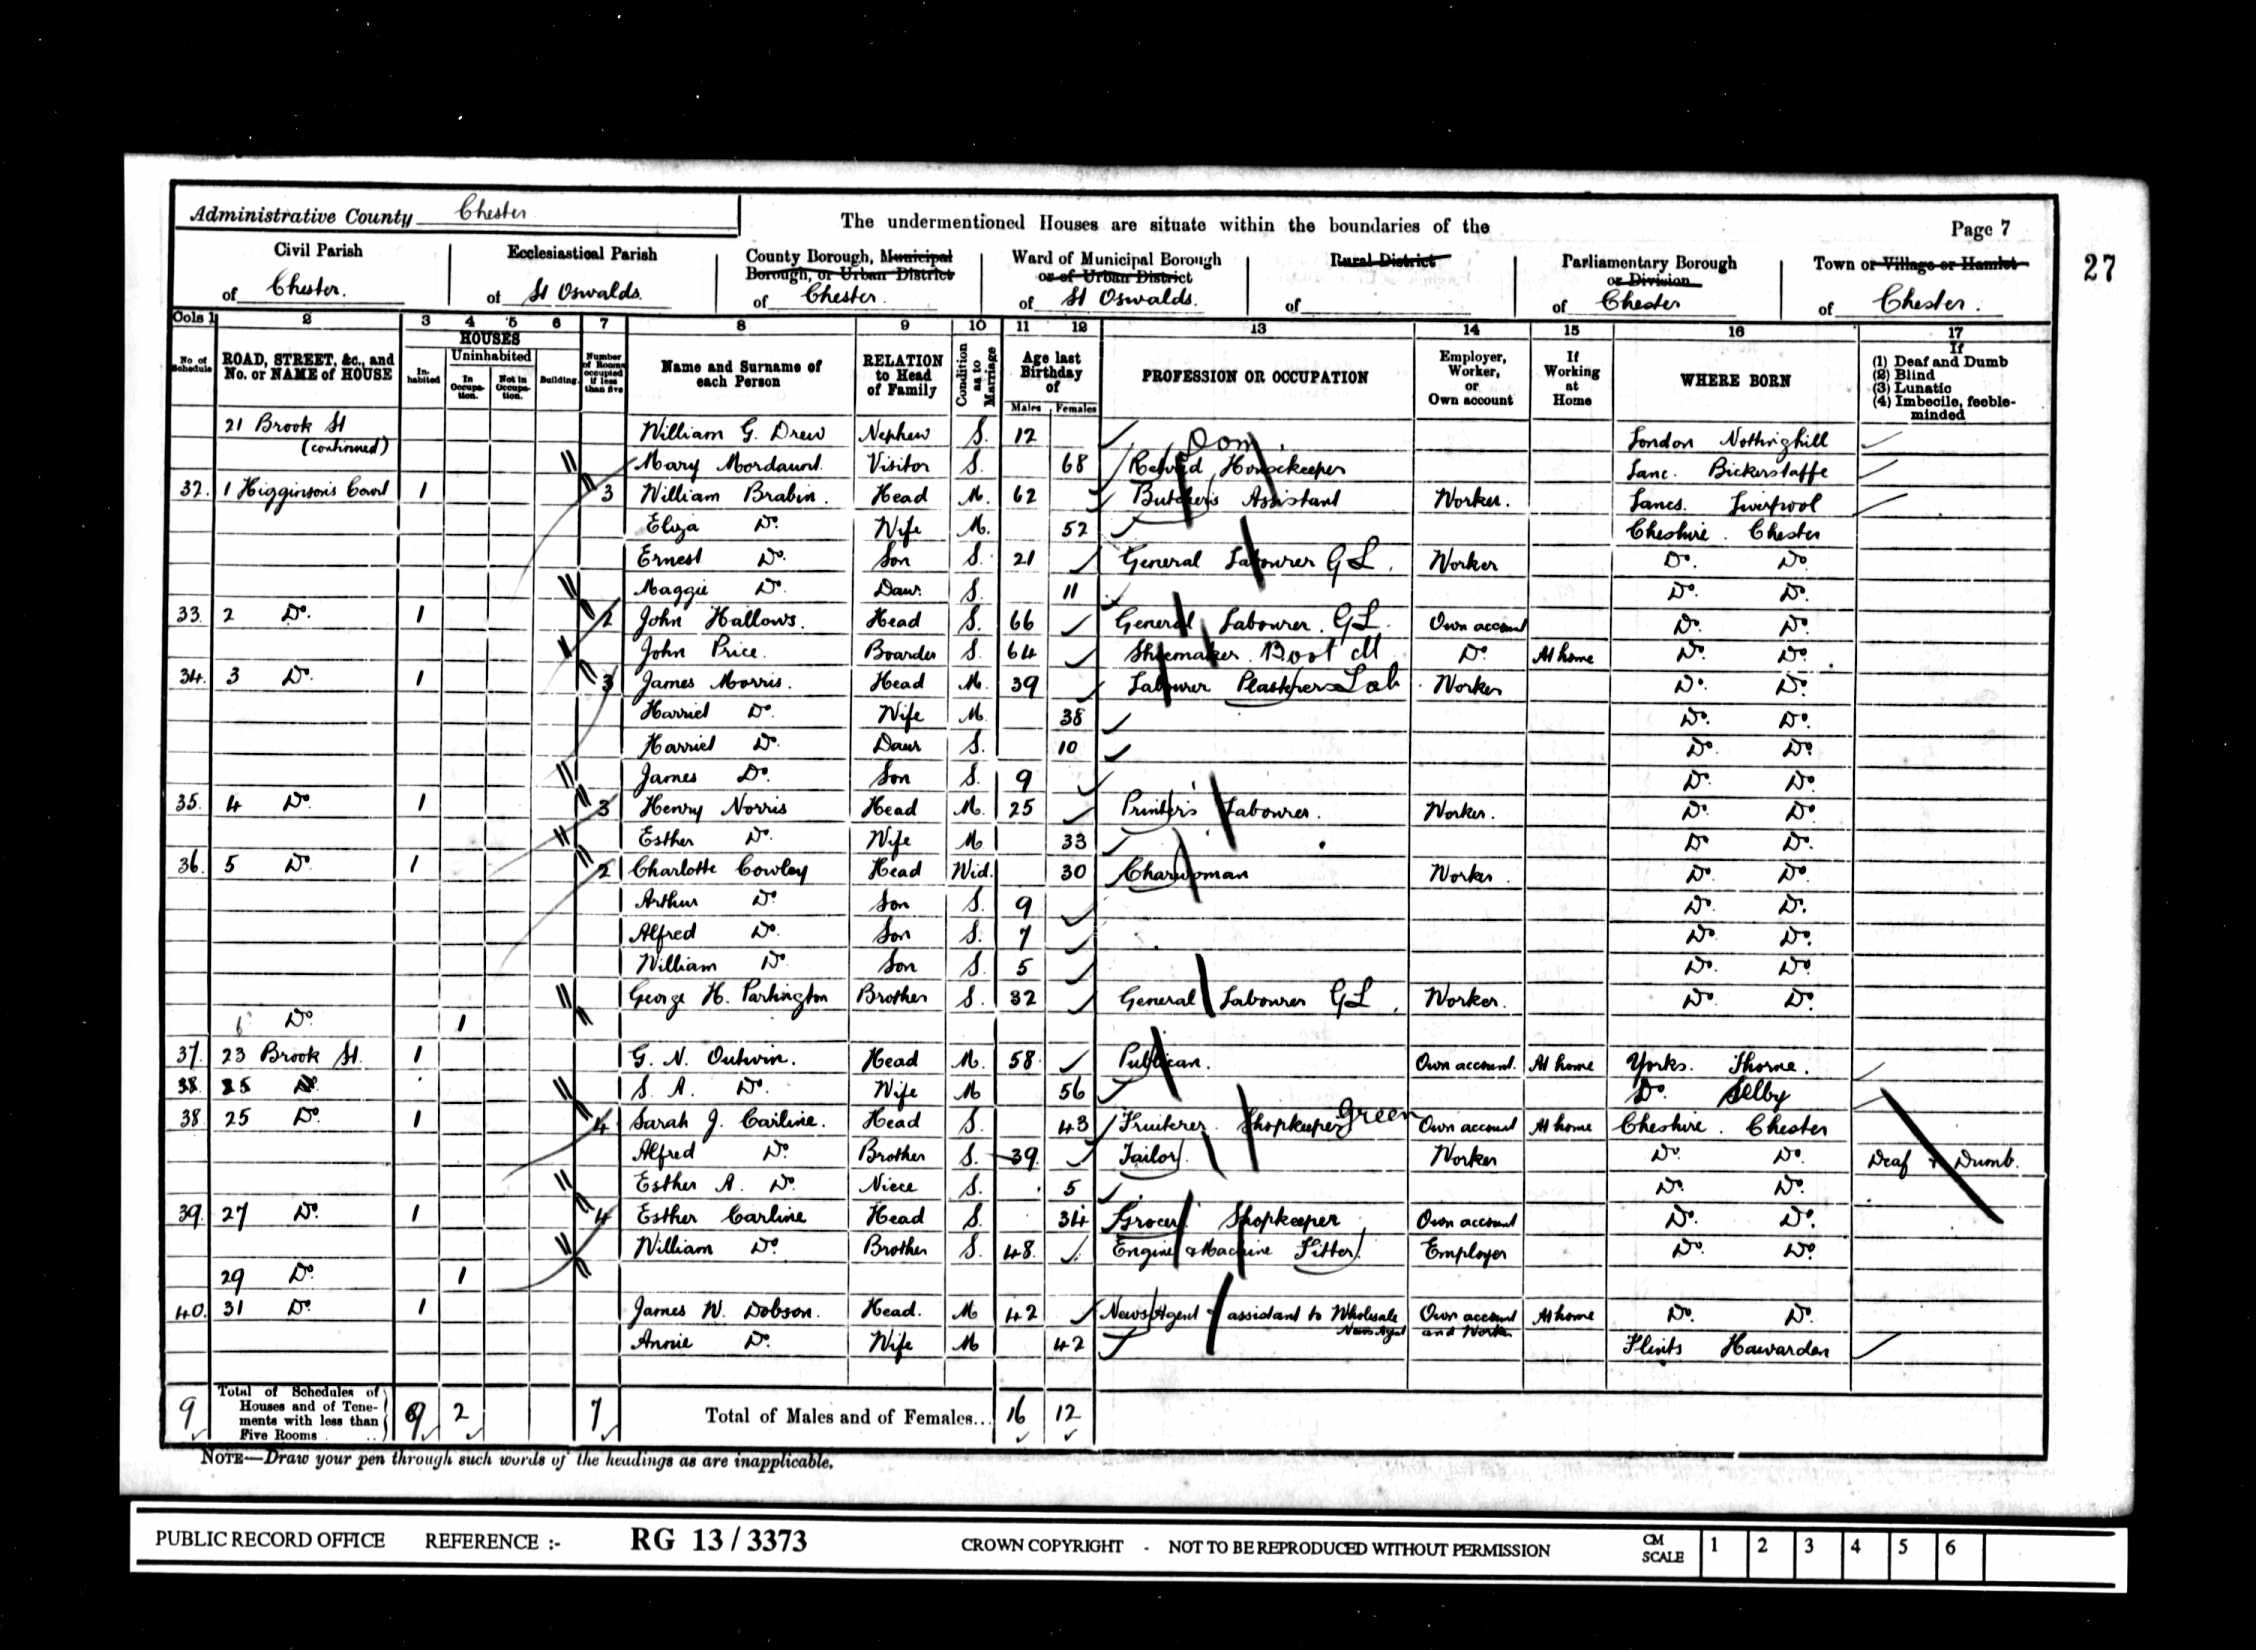 Administrative County Chester
The undermentioned Houses are situate within the boundaries of the
Page 7
27
Civil Parish of Chester.
Ecclesiastical Parish of St Oswalds.
County Borough, Municipal Borough, or Urban District of Chester.
Ward of Municipal Borough or of Urban District of St Oswalds.
Rural District of
Parliamentary Borough or Division of Chester
Town or Village or Hamlet of Chester.
Cols 1 2 3 4 5 6 7 8 9 10 11 12 13 14 15 16 17
No of Schedule
ROAD, STREET, &c., and No. or NAME of HOUSE
HOUSES
Inhabited
Uninhabited
In Occupation.
Not in Occupation.
Building.
Number of Rooms occupied if less than five
Name and Surname of each Person
RELATION to Head of Family
Condition as to Marriage
Age last Birthday of
Males Females
PROFESSION OR OCCUPATION
Employer, Worker, or Own account
If Working at Home
WHERE BORN
If
(1) Deaf and Dumb
(2) Blind
(3) Lunatic
(4) Imbecile, feeble-minded
21 Brook St (continued) William G. Drew Nephew S. 12 London Nottinghill
Dom
Mary Mordaunt. Visitor S. 68 Retired Housekeeper Lanc. Bickerstaffe
32. 1 Higginson's Court 1 3 William Brabin. Head M. 62 Butcher's Assistant Worker. Lancs. Liverpool
Eliza Do. Wife M. 52 Cheshire. Chester
Ernest Do. Son S. 21 General Labourer GL. Worker Do. Do.
Maggie Do. Daur. S. 11 Do. Do.
33. 2 Do. 1 2 John Hallows. Head S. 66 General Labourer. GL. Own account Do. Do.
John Price. Boarder S. 64 Shoemaker. Boot M Do. At home Do. Do.
34. 3 Do. 1 3 James Morris. Head M. 39 Labourer Plasterers Lab Worker Do. Do.
Harriet Do. Wife M. 38 Do. Do.
Harriet Do. Daur S. 10 Do. Do.
James Do. Son S. 9 Do. Do.
35. 4 Do. 1 3 Henry Norris Head M. 25 Printer's Labourer. Worker. Do. Do.
Esther Do. Wife M 33 Do Do.
36. 5 Do 1 2 Charlotte Cowley Head Wid. 30 Charwoman Worker. Do. Do.
Arthur Do Son S. 9 Do. Do.
Alfred Do. Son S. 7 Do. Do.
William Do Son S. 5 Do. Do.
George H. Partington Brother S. 32 General Labourer GL. Worker. Do. Do.
6 Do. 1
37. 23 Brook St. 1 G. N. Outwin. Head M. 58. Publican. Own account. At home Yorks. Thorne.
38. 25 Do. S. A. Do. Wife M 56 Do. Selby
38 25 Do. 1 4 Sarah J. Carline. Head S. 43 Fruiterer. Shopkeeper Green Own account At home Cheshire. Chester
Alfred Do. Brother S. 39. Tailor. Worker Do. Do. Deaf & Dumb.
Esther A. Do. Niece S. 5 Do. Do.
39. 27 Do. 1 4 Esther Carline Head S. 34 Grocer. Shopkeeper Own account Do. Do.
William Do. Brother S. 48. Engine & Machine Fitter. Employer Do. Do.
29 Do. 1
40. 31 Do. 1 James W. Dobson. Head. M 42 News Agent & assistant to Wholesale News Agent Own account and Worker At home Do. Do.
Annie Do. Wife M 42 Flints Hawarden
9 Total of Schedules of Houses and of Tenements with less than Five Rooms .. 9 2 7 Total of Males and of Females... 16 12
NOTE—Draw your pen through such words of the headings as are inapplicable.
PUBLIC RECORD OFFICE REFERENCE :- RG 13 / 3373 CROWN COPYRIGHT - NOT TO BE REPRODUCED WITHOUT PERMISSION CM SCALE 1 2 3 4 5 6